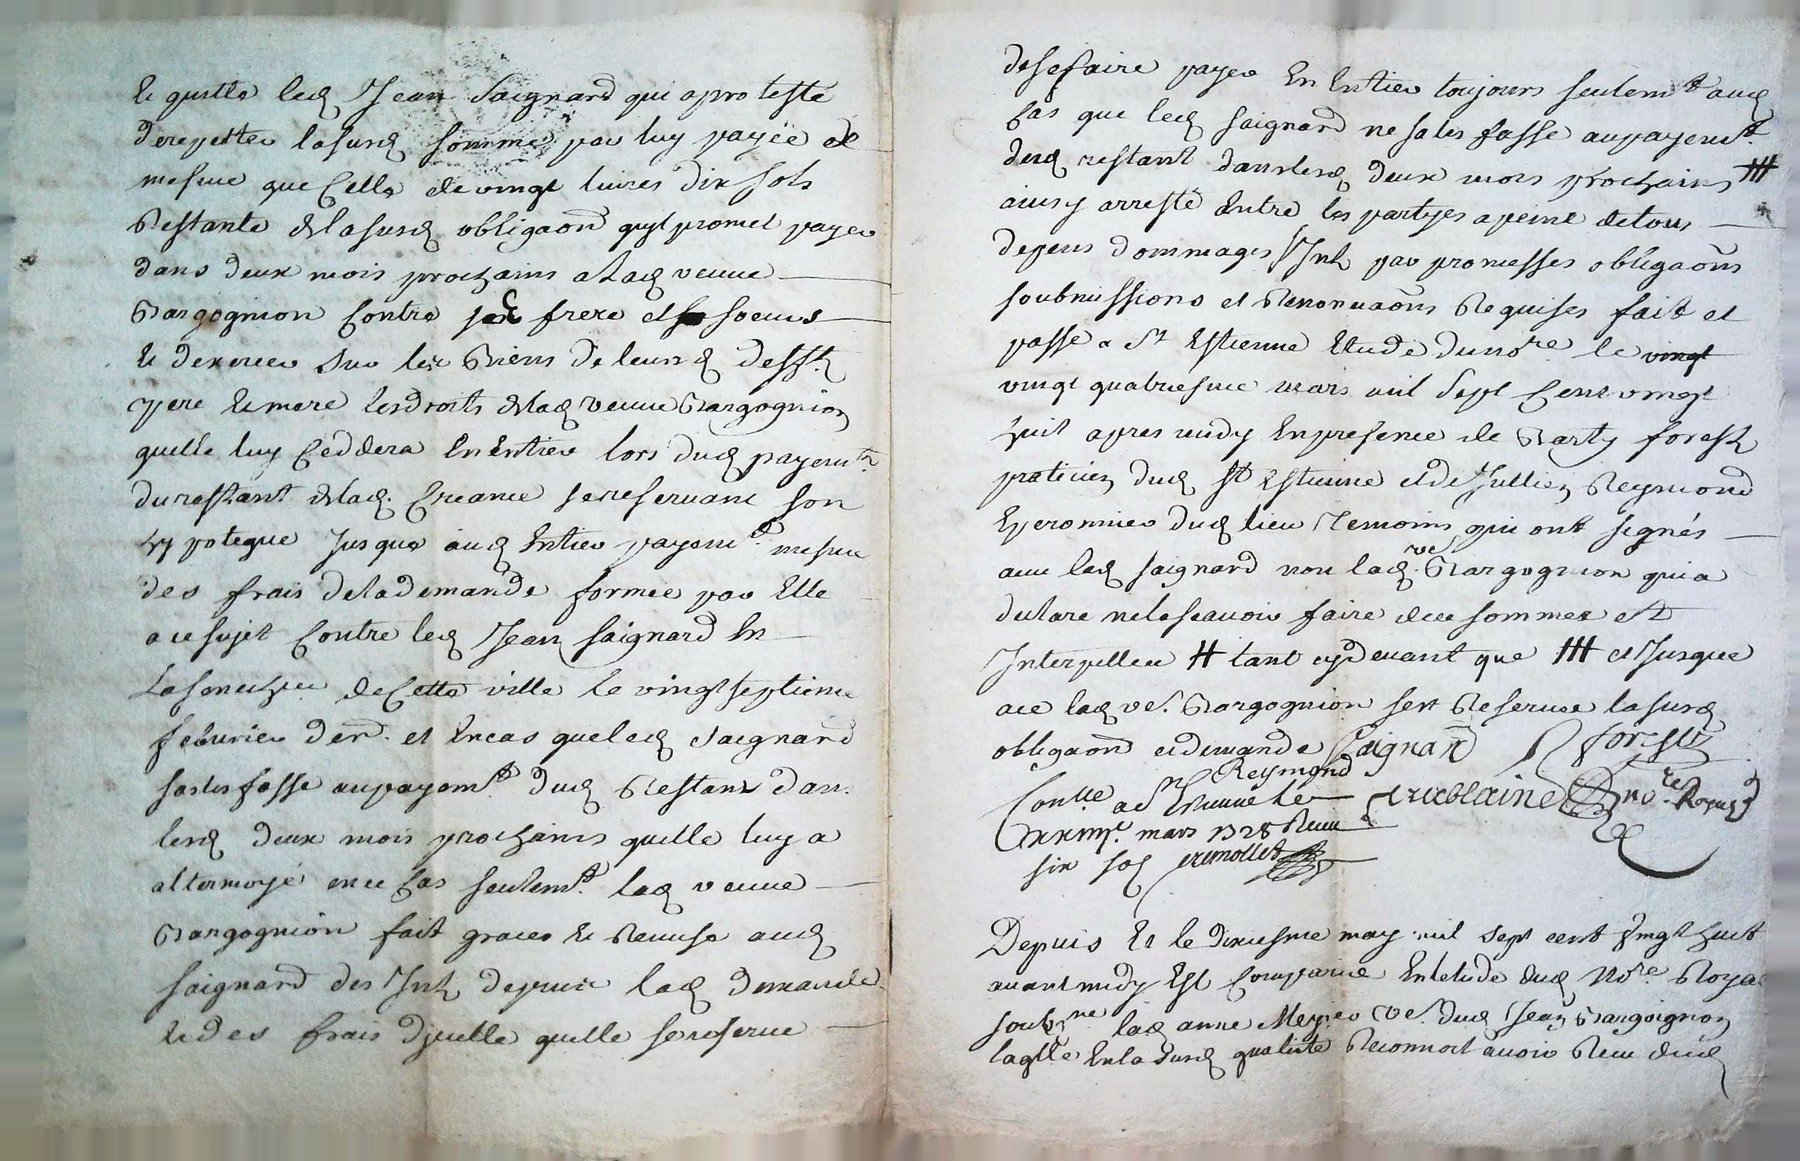 Et quitte led Jean Saignard qui a proteste
de repetter lasusd somme par luy payée de
mesme que celle de vingt livres dix sols
Restante de lasusd obligaon quyl promet payer
dans deux mois prochains a Lad veuve
Bargognion contre ses frere et soeurs
Et dexercer sur les Biens de leursd deffts
pere Et mere les droits de lad veuve Bargognion
quelle luy ceddera En Entier lors dud payemt
du restant de lad. Creance se reservant son
hypoteque Jusqua aud Entier payemt mesme
des frais de la demande formée par Elle
a ce sujet contre led Jean Saignard En
La senechee de Cette ville le vingt septieme
feburier der. et En cas que led Saignard
satisfasse au payemt dud Restant dans
lesd deux mois prochains quelle luy a
attermoyé en ce cas seulemt lad veuve
Bargognion fait graces Et Remise aud
Saignard des Intz depuis lad demande
Et des frais dycelle quelle se reserve
de se faire payer En Entier toujours seulemt aud
cas que led Saignard ne satisfasse au payemt
dud restant dans lesd deux mois prochains ##
ainsy arresté Entre les partyes a peine de tous
depens dommages Intz par promesses obligaons
soubmissions et Renonciaons Requises fait et
passé a St Estienne Etude du nore le vingt
vingt quatriesme mars mil sept cent vingt
huit apres midy En presence de Barty forest
praticien dud St Estienne et de Jullien Reymond
Eperonnier dud lieu Temoins qui ont signés
avec led Saignard non lad ve Bargognion qui a
declaré ne le scavoir faire de ce sommée et
Interpellée # tant cy devant que ## et Jusque
a ce lad ve. Bargognion sest Reservée lasusd
obligaon et demande Saignard forest
Reymond
Conlle a St Etienne le
mars 1728 Receu
six sols
Depuis Et le dixiesme may mil sept cent vingt huit
avant midy Est comparue En letude dud Nore Royal
soubzne lad anne Meynier ve. dud Jean Bargoignon
laqlle En la susd qualité Reconnoit avoir Receu dud